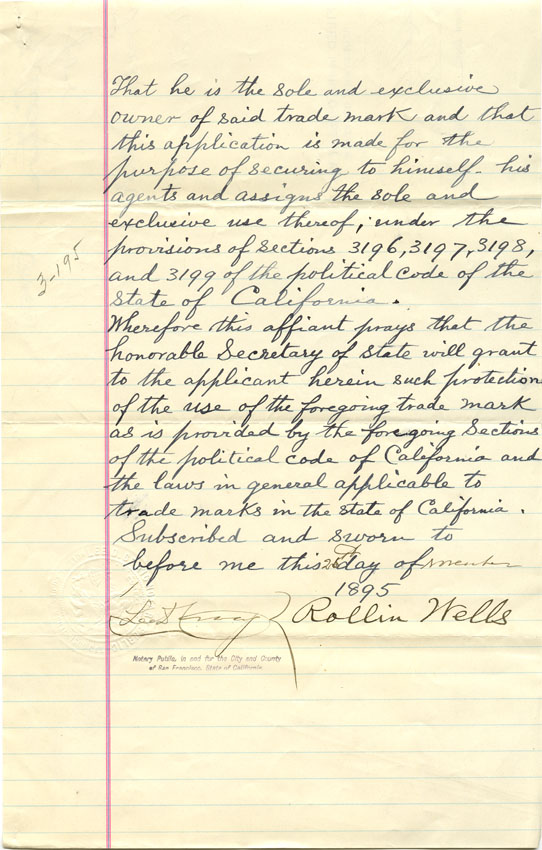 That he is the sole and exclusive
owner of said trade mark and that
this application is made for the
purpose of securing to himself - his
agents and assigns the sole and
exclusive use thereof; under the
provisions of Sections 3196, 3197, 3198,
3-195
and 3199 of the political code of the
State of California.
Wherefore this affiant prays that the
honorable Secretary of State will grant
to the applicant herein such protection
of the use of the foregoing trade mark
as is provided by the foregoing Sections
of the political code of California and
the laws in general applicable to
trade marks in the state of California.
Subscribed and sworn to
before me this day of
1895
Rollin Wells
Notary Public, in and for the City and County
of San Francisco, State of California